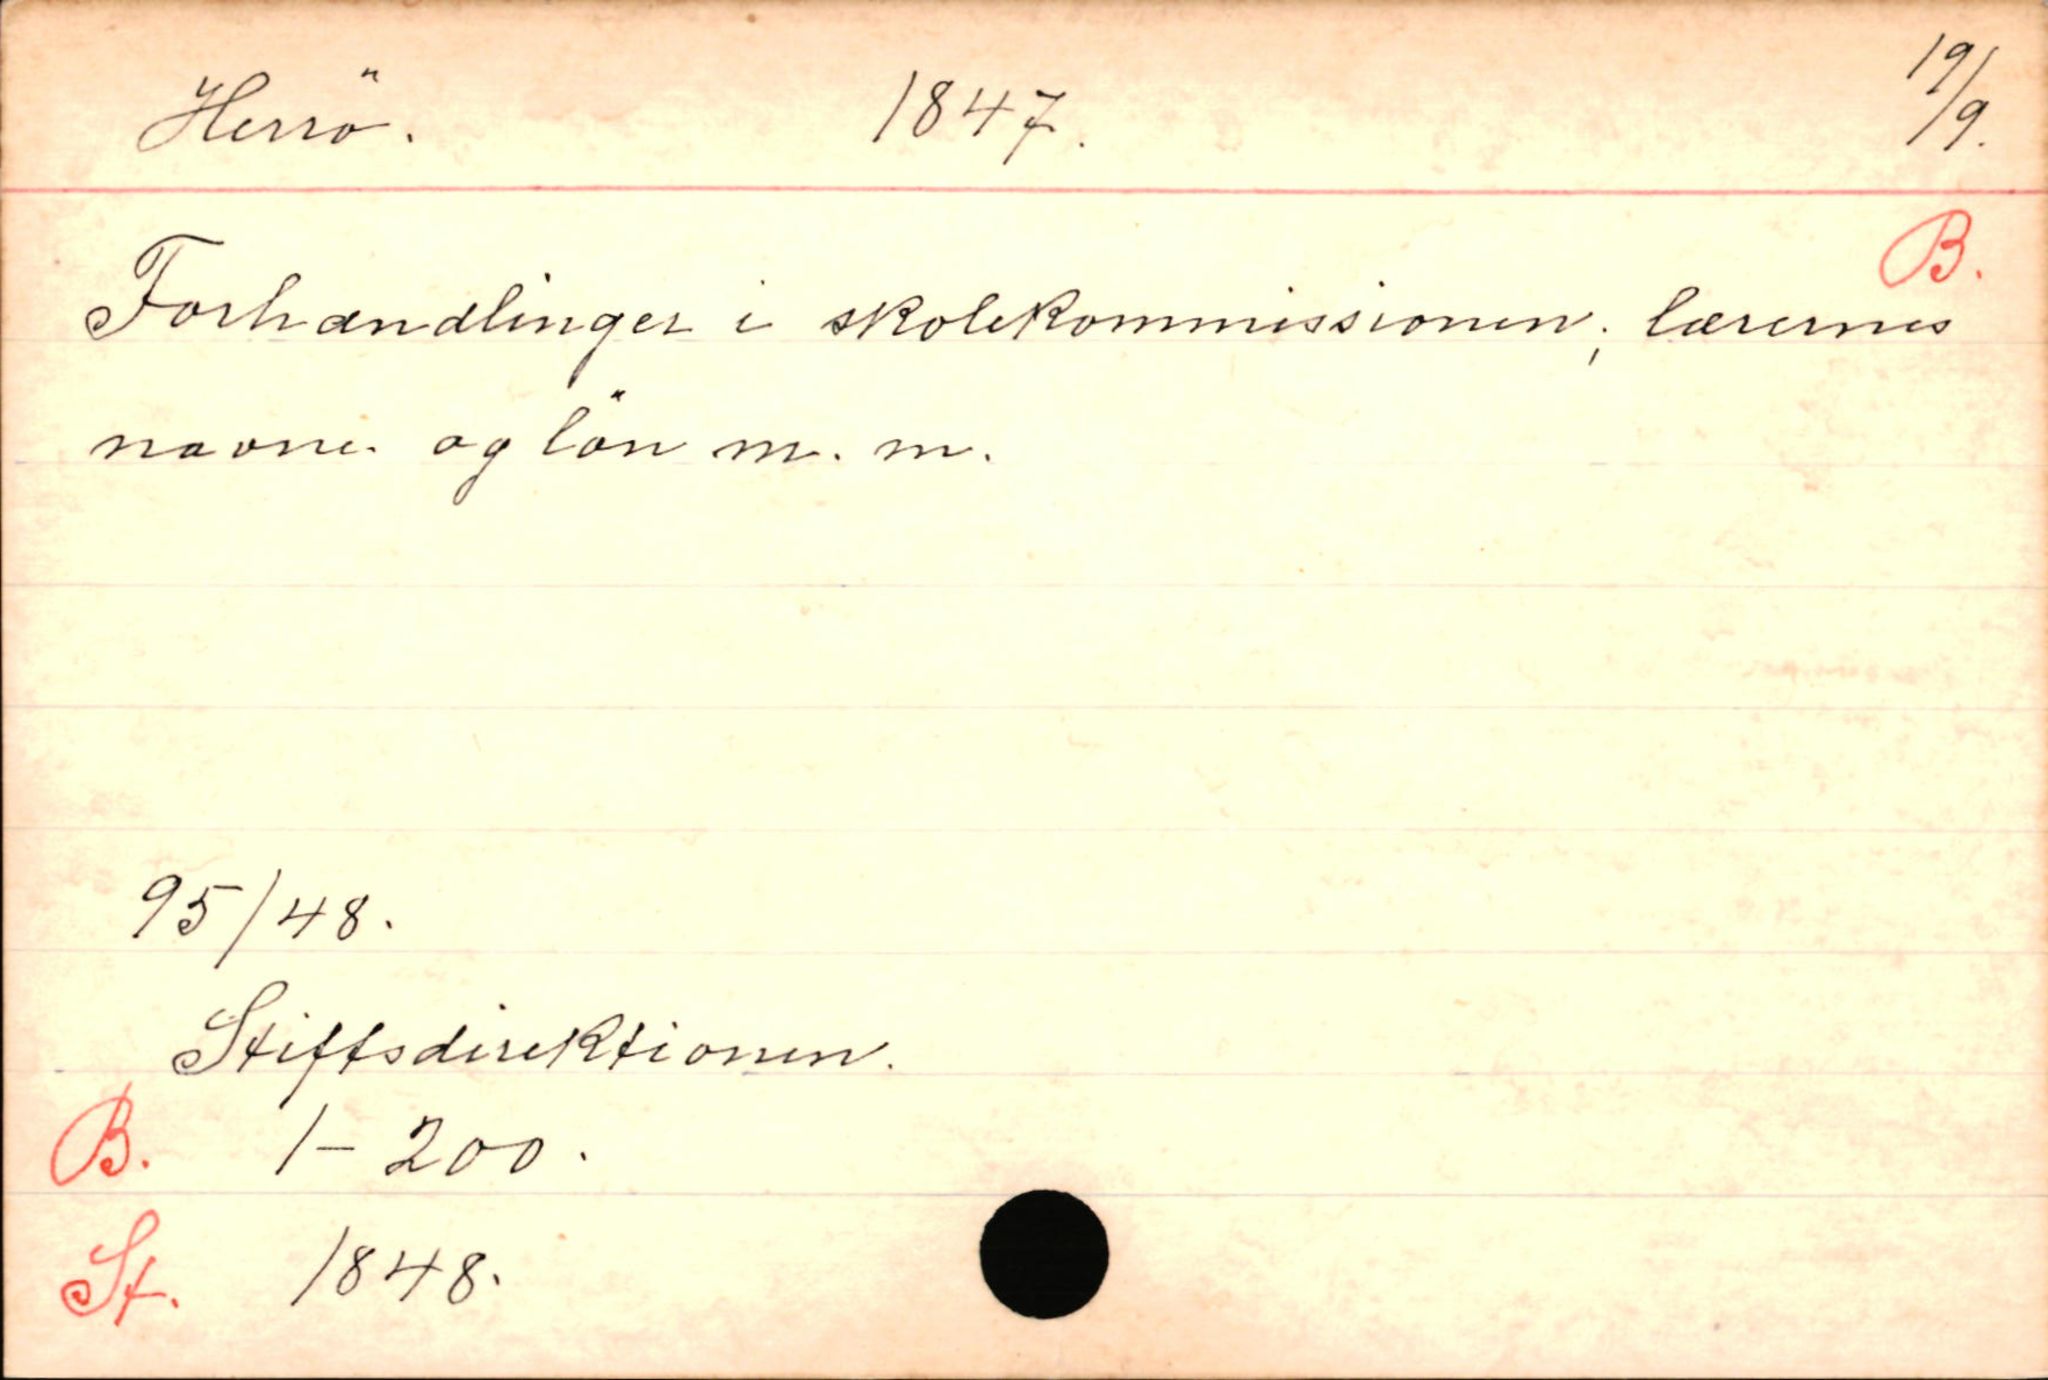 Herrö. 1847. 19/9.
B.
Forhandlinger i skolekommissionen; lærernes
navne og lön m. m.
95/48.
Stiftsdirektionen.
B. 1-200.
St. 1848.